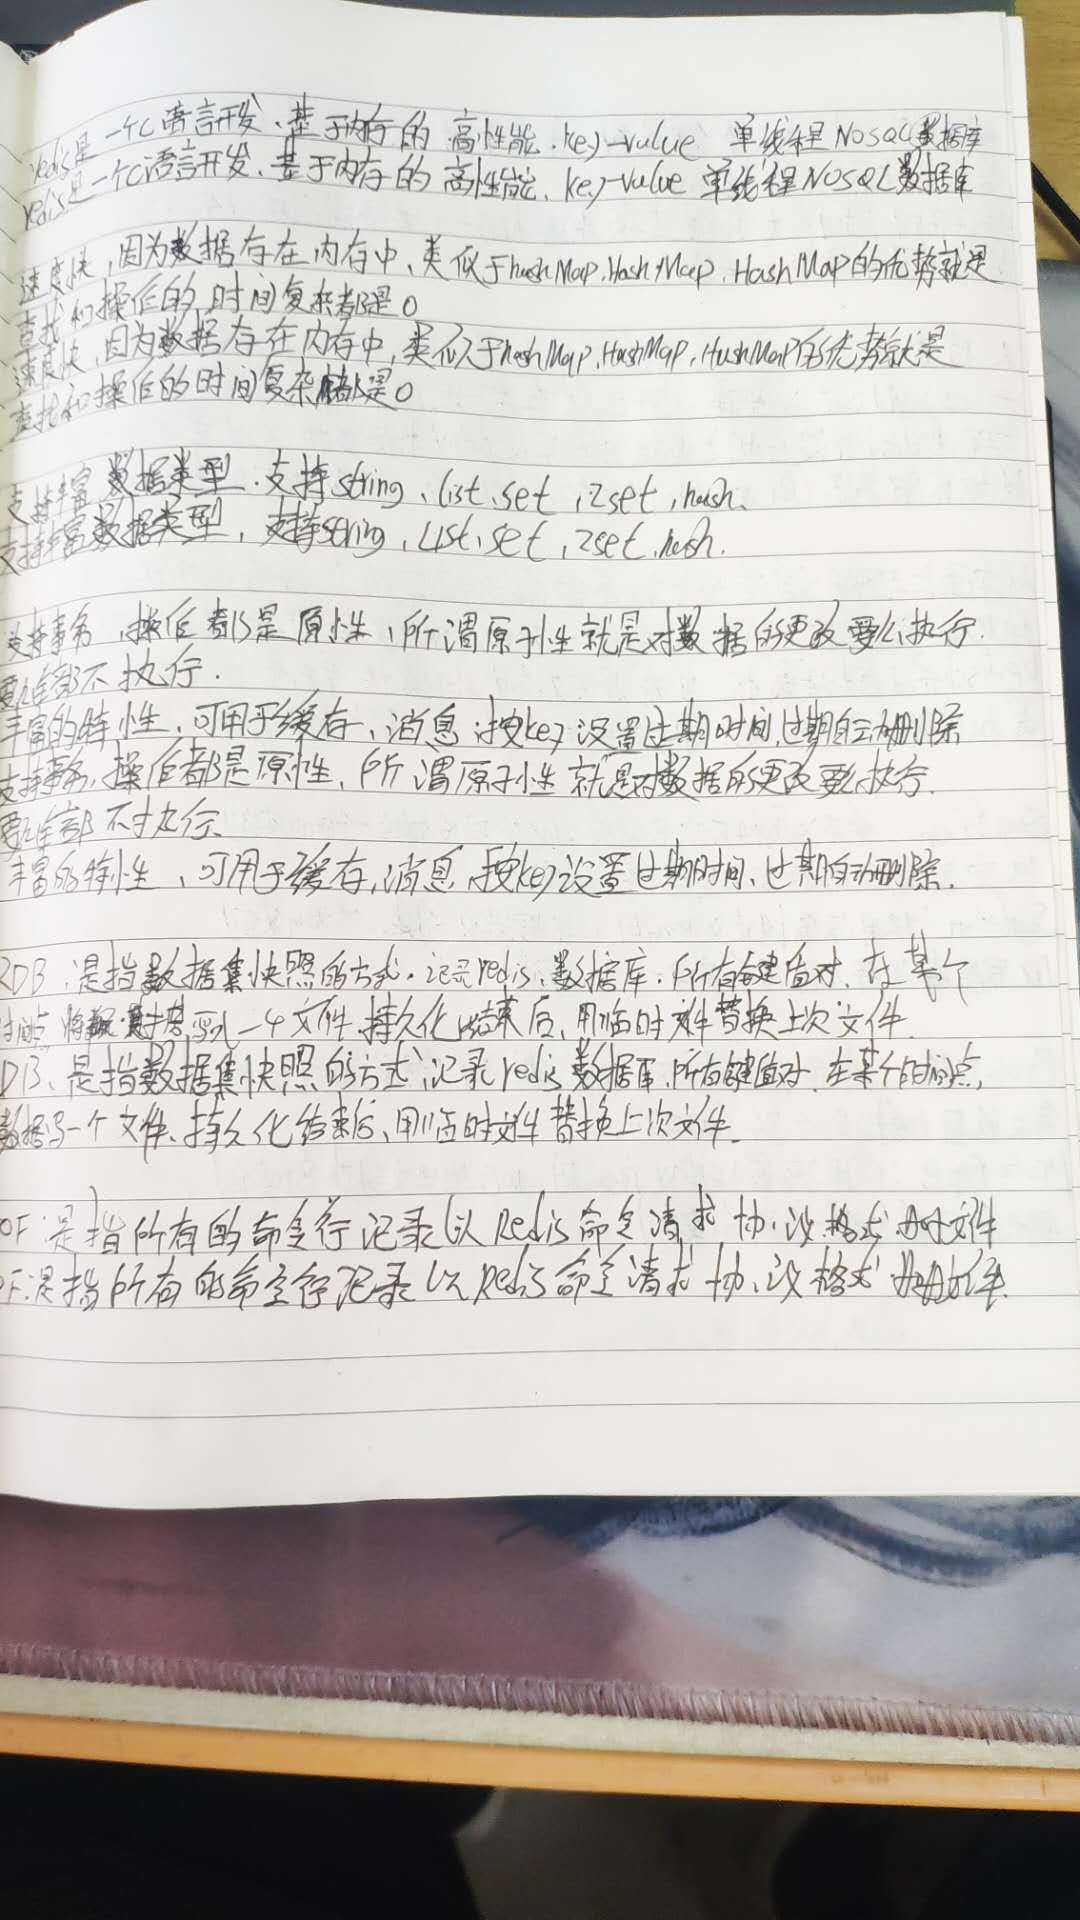 redis是一个C语言开发、基于内存的高性能、key-value 单线程NoSQL数据库
redis是一个C语言开发、基于内存的高性能、key-value 单线程NOSQL数据库
速度快，因为数据存在内存中，类似于hashMap,HashMap，HashMap的优势就是
查找和操作的时间复杂都是O
速度快，因为数据存在内存中，类似于hashMap,HashMap，HashMap的优势就是
查找和操作的时间复杂都是O
支持丰富数据类型．支持string、list、set，zset，hash、
支持丰富数据类型，支持string，List、set，zset，hash．
支持事务，操作都是原性，所谓原子性就是对数据的更改要么执行．
要么全部不执行．
丰富的特性，可用于缓存，消息，按key设置过期时间,过期自动删除
支持事务，操作都是原性，所谓原子性就是对数据的更改要么执行．
要么全部不执行、
丰富的特性，可用于缓存，消息，按key设置过期时间、过期自动删除．
RDB，是指数据集快照的方式．记录redis、数据库．所有键值对，在某个
时间点 将数据 写入一个文件、持久化结束后，用临时文件替换上次文件
DB、是指数据集快照的方式，记录redis数据库，所有键值对，在某个时间点，
数据写一个文件、持久化结束后，用临时文件替换上次文件．
OF：是指所有的命令行记录以Redis命令请求协议格式 文件
F：是指所有的命令行记录以Redis命令请求协议格式